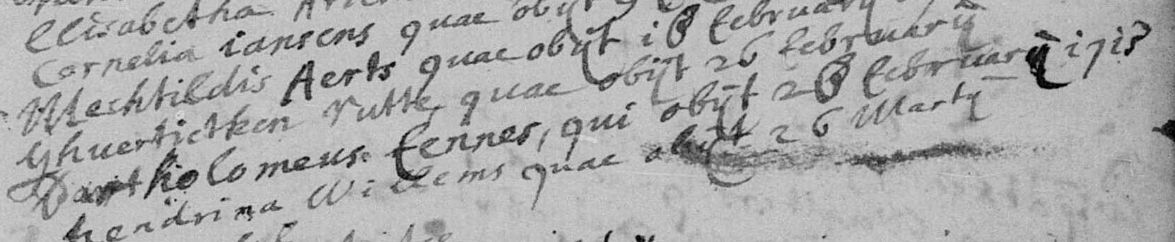 Elisabetha
Cornelia iansens quae obijt
Mechtildis Aerts quae obijt 18 februarij
Ghuertictken Rutte quae obijt 26 februarij
Bartholomeus fennes, qui obijt 28 februarij 1715
hendrina Willems quae obijt 26 Martij